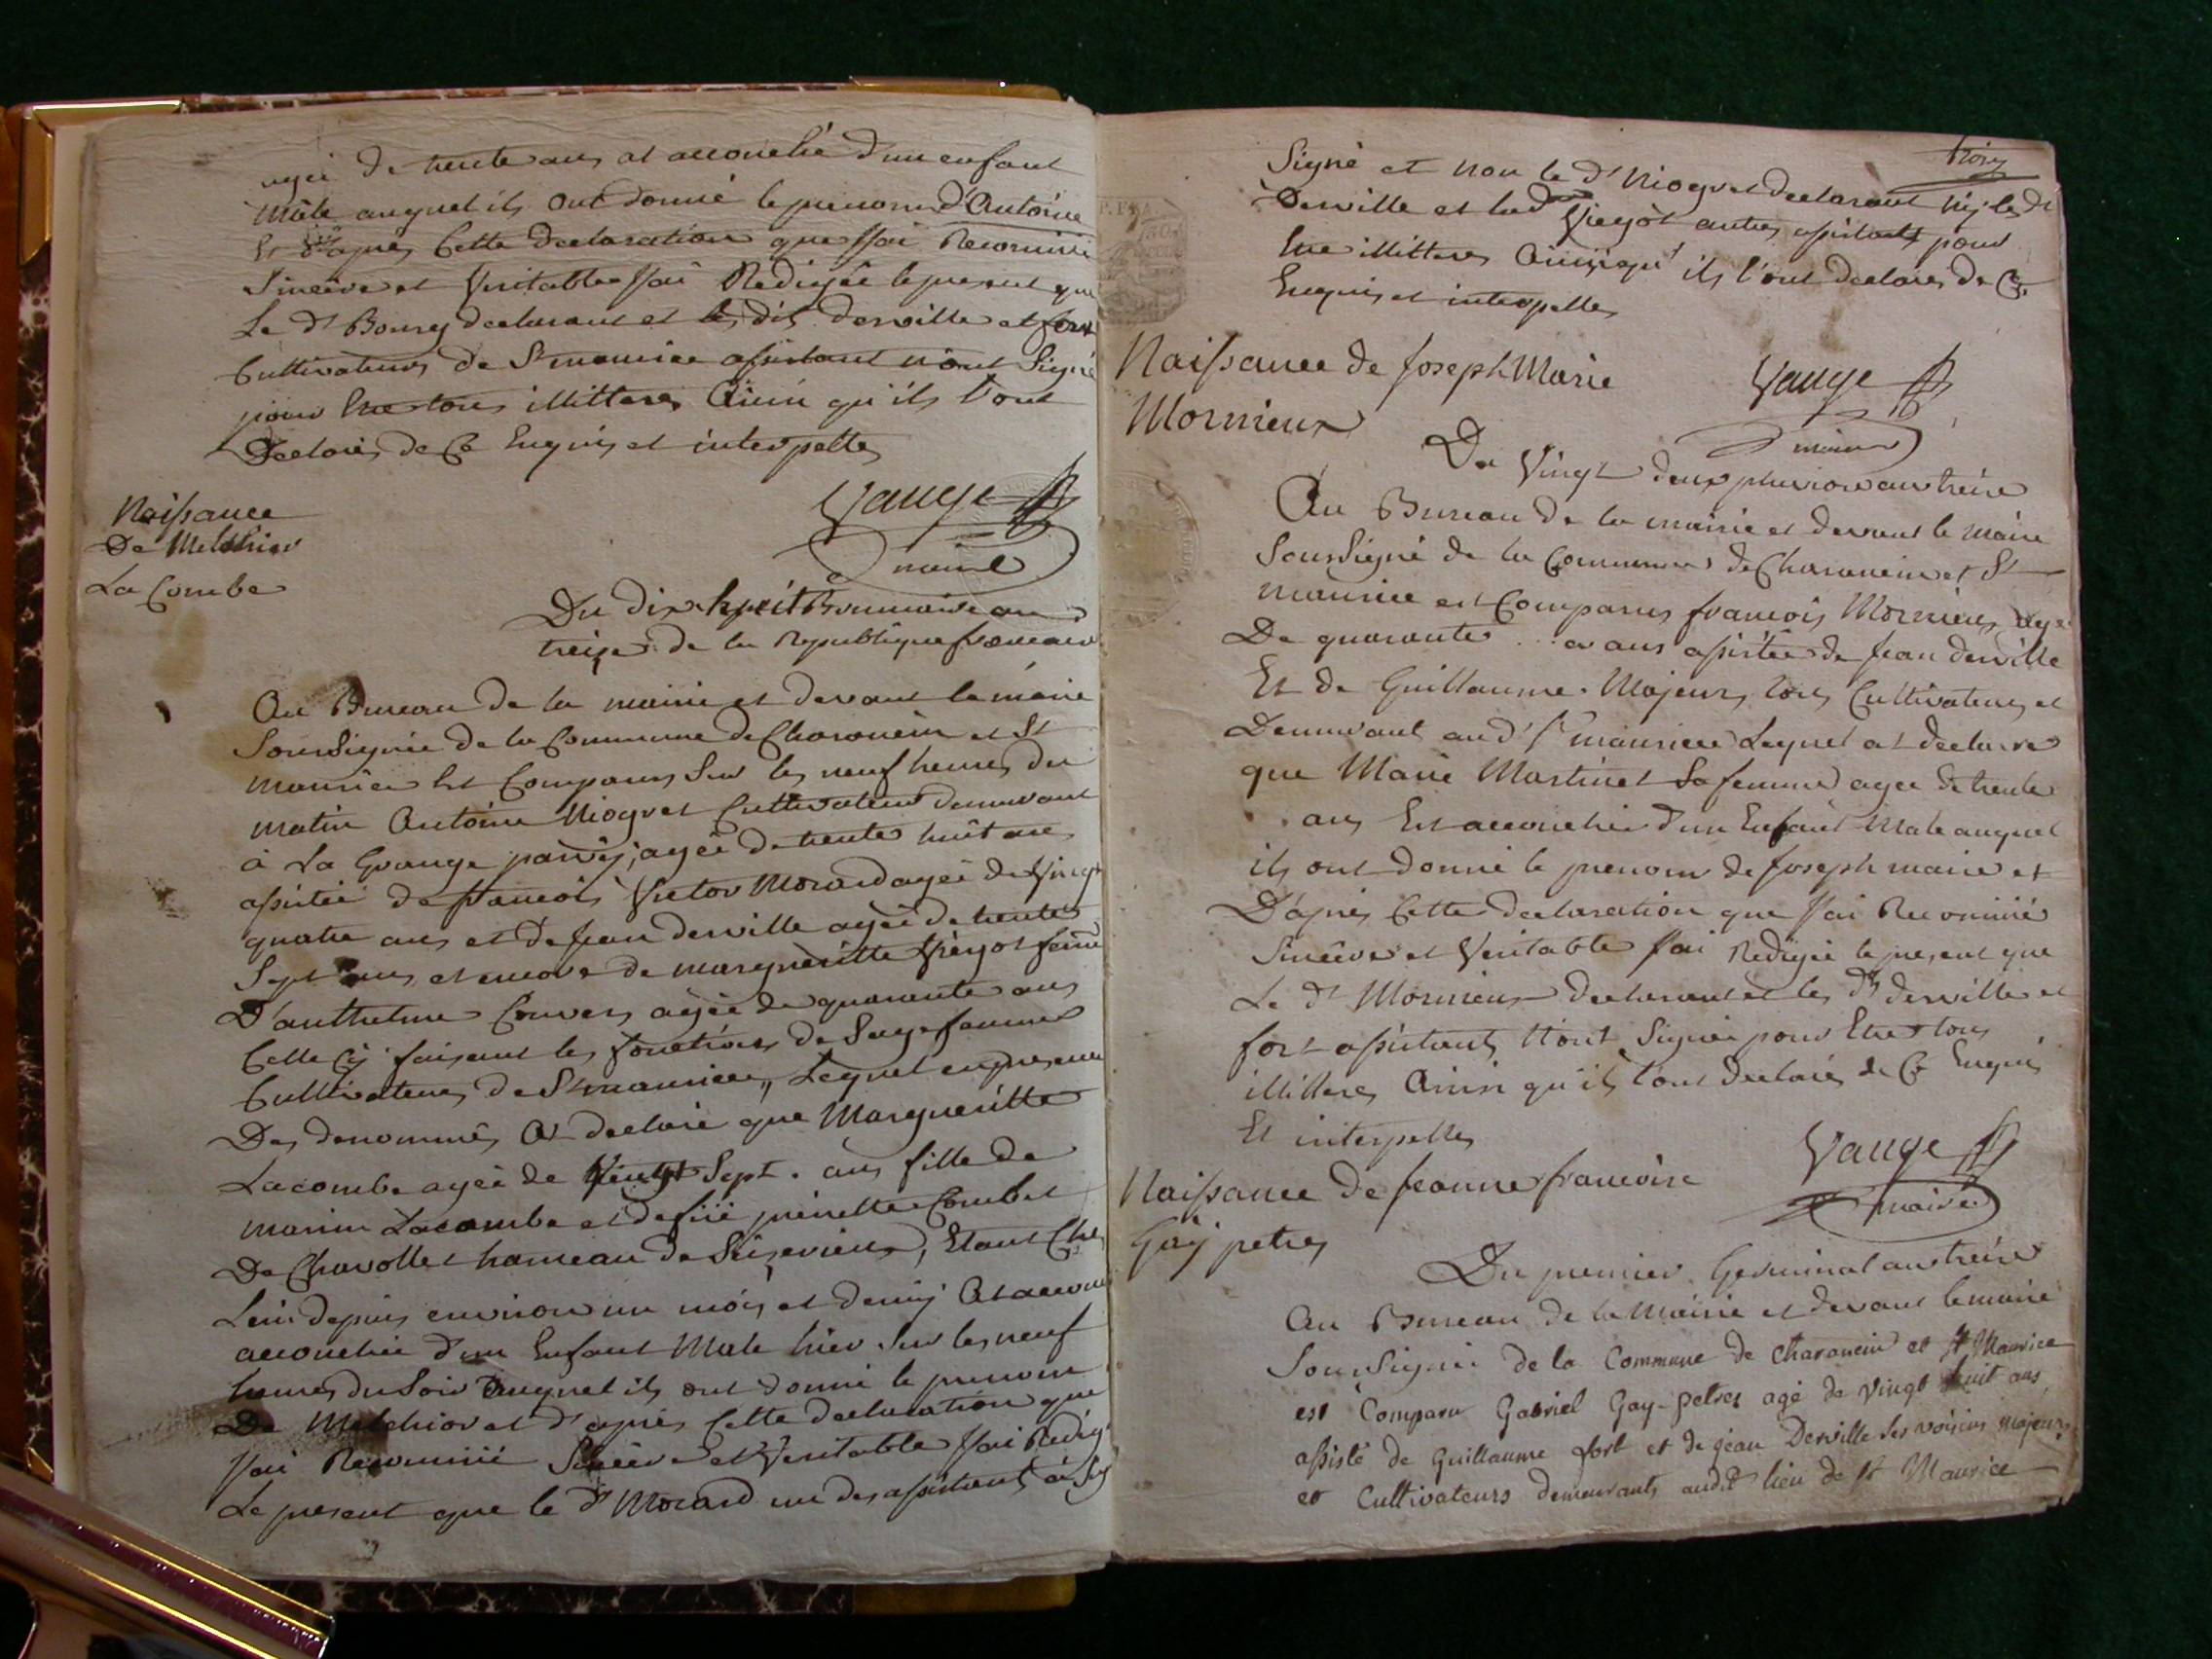 agée de trente ans at accouchée d'un enfant
Mâle auquel ils ont donné le prenom d'Antoine
Et d'après Cette declaration que J'ai Reconnüe
Sincère et Veritable J'ai Redigée le present que
Le dt Bourg declarant et les dits derville et fort
Cultivateurs de St maurice assistant n'ont Signé
pour Etre tous illitteres Ainsi qu'ils l'ont
Declarés de Ce Enquis et interpellés
Vauge
maire
Naissance
De Melchior
La Combe
Du dix huit Brumaire an
treize de la Republique francaise
Au Bureau de la mairie et devant le maire
Sousignée de la Commune de Charancin et St
maurice Est Comparus Sur les neuf heures du
matin Antoine Niogret Cultivateur demeurant
à La Grange agée de trente huit ans
assistée de francois Victor Morard agée de Vingt
quatre ans et de Jean derville agée de trente
Sept ans et encore de margueritte Vieyot femme
D'anthelme Convers agée de quarante ans
Celle Cy faisant les fonctions de Sage femme
Cultivateurs de St maurice, Lequel en presence
Des denommés At declaré que Margueritte
Lacombe agée de Vingt Sept ans fille de
marin Lacombe et de Combet
De Chavollet hameau de Etant Chez
Lui depuis environ un mois et demij At accou
accouchée d'un Enfant Male hier Sur les neuf
heures du Soir Auquel ils ont donné le prenom
De Melchior et d'après Cette declaration que
J'ai Reconnüe Sincère et Veritable J'ai Redigé
Le present que le dt Morard un des assistants à Sig
trois
Signé et non le dt Niogret declarant nij les dt
Derville et lad Vieyot autres assistants pour
Etre illitteres Ainsi qu'ils l'ont declarés de Ce
Enquis et interpellés
Naissance de Joseph Marie
Mornieux
Vauge
maire
Du Vingt deux pluviose an treize
Au Bureau de la mairie et devant le Maire
Sousigné de la Commune de Charancin et St
maurice est Comparus francois Mornieux agé
De quarante ans assistée de Jean derville
Et de Guillaume Majeurs tous Cultivateurs et
Demeurant au dt St maurice Lequel at declaré
que Marie Martinet Sa femme agée de trente
ans Est accouchée d'un Enfant Male auquel
ils ont donné le prenom de Joseph marie et
D'après Cette declaration que J'ai Reconnüe
Sincère et Veritable J'ai Redigée le present que
Le dt Mornieux declarant et les dts derville et
fort assistants N'ont Signée pour Etre tous
illitteres Ainsi qu'ils l'ont declarés de Ce Enquis
Et interpellés
Vauge
maire
Naissance de Jeanne francoise
Gaÿ petres
Du premier Germinal an treize
Au Bureau de la Mairie et devant le maire
Sousignée de la Commune de Charancin et St Maurice
est Comparu Gabriel Gay-petres agé de vingt huit ans
assisté de Guillaume fort et de jean Derville ses voisins majeurs
et Cultivateurs demeurants audit lieu de St Maurice